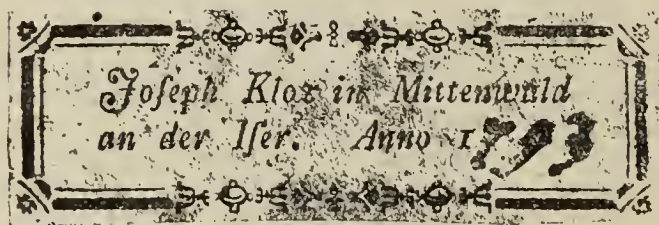 Joſeph Kloz in Mittenwald
an der Iſer. Anno 1793